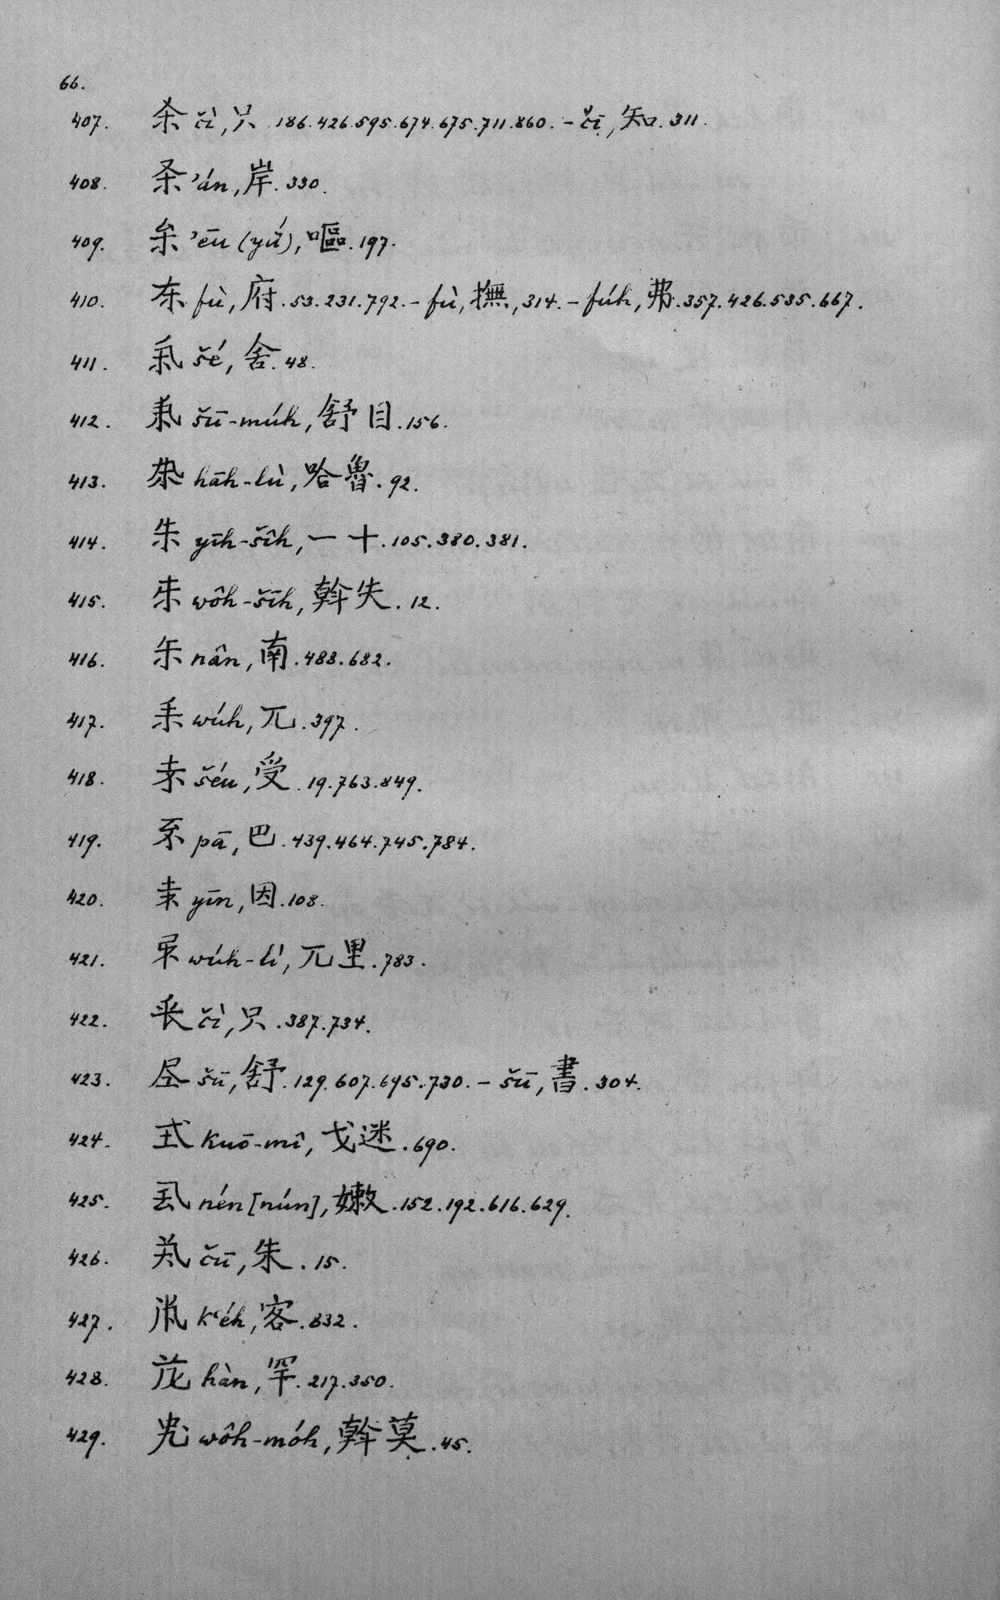 66.
407. čì, 只. 186.426.595.674.675.711.860. – čī, 知. 311.
408. ’án, 岸. 330.
409. ’ēu (yǘ), 嘔. 197.
410. fù, 府. 53.231.792. – fù, 撫, 314. – fúh, 弗. 357.426.535.667.
411. šé, 舍. 48.
412. šū-múh, 舒目. 156.
413. hāh-lù, 哈魯. 92.
414. yīh-šîh, 一十. 105.380.381.
415. wôh-šīh, 斡失. 12.
416. nân, 南. 488.682.
417. wúh, 兀. 397.
418. šéu, 受. 19.763.849.
419. pā, 巴. 439.464.745.784.
420. yīn, 因. 108.
421. wúh-lì, 兀里. 783.
422. čì, 只. 387.734.
423. šū, 舒. 129.607.695.730. – šū, 書. 304.
424. kuō-mî, 戈迷. 690.
425. nén [nún], 嫩. 152.192.616.629.
426. čū, 朱. 15.
427. k‘éh, 客. 832.
428. hàn, 罕. 217.350.
429. wôh-móh, 斡莫. 45.